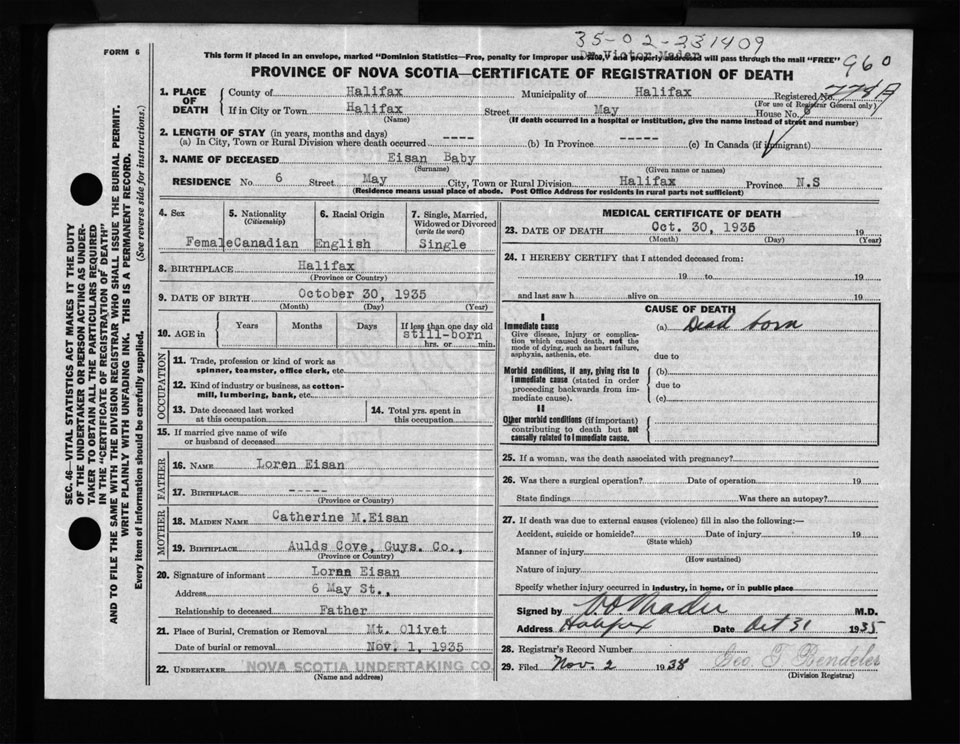 35-02-231409
FORM 6
Dr Victor Mader
This form if placed in an envelope, marked "Dominion Statistics—Free, penalty for improper use $300," and properly addressed will pass through the mail "FREE"
960
PROVINCE OF NOVA SCOTIA—CERTIFICATE OF REGISTRATION OF DEATH
1. PLACE OF DEATH
County of Halifax Municipality of Halifax Registered No.
(For use of Registrar General only)
If in City or Town Halifax Street May House No. 6
(Name) (If death occurred in a hospital or institution, give the name instead of street and number)
2. LENGTH OF STAY (in years, months and days)
(a) In City, Town or Rural Division where death occurred ---- (b) In Province ----- (c) In Canada (if immigrant)
3. NAME OF DECEASED Eisan Baby
(Surname) (Given name or names)
RESIDENCE No. 6 Street May City, Town or Rural Division Halifax Province N.S
(Residence means usual place of abode. Post Office Address for residents in rural parts not sufficient)
4. Sex Female
5. Nationality (Citizenship) Canadian
6. Racial Origin English
7. Single, Married, Widowed or Divorced (write the word) Single
8. BIRTHPLACE Halifax
(Province or Country)
9. DATE OF BIRTH October 30, 1935
(Month) (Day) (Year)
10. AGE in Years Months Days If less than one day old
still-born
hrs. or min.
OCCUPATION
11. Trade, profession or kind of work as spinner, teamster, office clerk, etc.
12. Kind of industry or business, as cotton-mill, lumbering, bank, etc.
13. Date deceased last worked at this occupation
14. Total yrs. spent in this occupation
15. If married give name of wife or husband of deceased
FATHER
16. NAME Loren Eisan
17. BIRTHPLACE -----
(Province or Country)
MOTHER
18. MAIDEN NAME Catherine M.Eisan
19. BIRTHPLACE Aulds Cove, Guys. Co.,
(Province or Country)
20. Signature of informant Loren Eisan
Address 6 May St.,
Relationship to deceased Father
21. Place of Burial, Cremation or Removal Mt. Olivet
Date of burial or removal Nov. 1, 1935
22. UNDERTAKER NOVA SCOTIA UNDERTAKING CO.
(Name and address)
MEDICAL CERTIFICATE OF DEATH
23. DATE OF DEATH Oct. 30, 1935 19
(Month) (Day) (Year)
24. I HEREBY CERTIFY that I attended deceased from:
19 to 19
and last saw h alive on 19
CAUSE OF DEATH
I
Immediate cause (a) Dead born
Give disease, injury or complication which caused death, not the mode of dying, such as heart failure, asphyxia, asthenia, etc.
due to
Morbid conditions, if any, giving rise to immediate cause (stated in order proceeding backwards from immediate cause).
(b)
due to
(c)
II
Other morbid conditions (if important) contributing to death but not causally related to immediate cause.
25. If a woman, was the death associated with pregnancy?
26. Was there a surgical operation? Date of operation 19
State findings Was there an autopsy?
27. If death was due to external causes (violence) fill in also the following:—
Accident, suicide or homicide? Date of injury 19
(State which)
Manner of injury
(How sustained)
Nature of injury
Specify whether injury occurred in industry, in home, or in public place
Signed by V O Mader M.D.
Address Halifax Date Oct 31 1935
28. Registrar's Record Number
29. Filed Nov. 2 1938
(Division Registrar)
SEC. 46—VITAL STATISTICS ACT MAKES IT THE DUTY
OF THE UNDERTAKER OR PERSON ACTING AS UNDER-
TAKER TO OBTAIN ALL THE PARTICULARS REQUIRED
IN THE "CERTIFICATE OF REGISTRATION OF DEATH"
AND TO FILE THE SAME WITH THE DIVISION REGISTRAR WHO SHALL ISSUE THE BURIAL PERMIT.
WRITE PLAINLY WITH UNFADING INK. THIS IS A PERMANENT RECORD.
Every item of information should be carefully supplied. (See reverse side for instructions.)